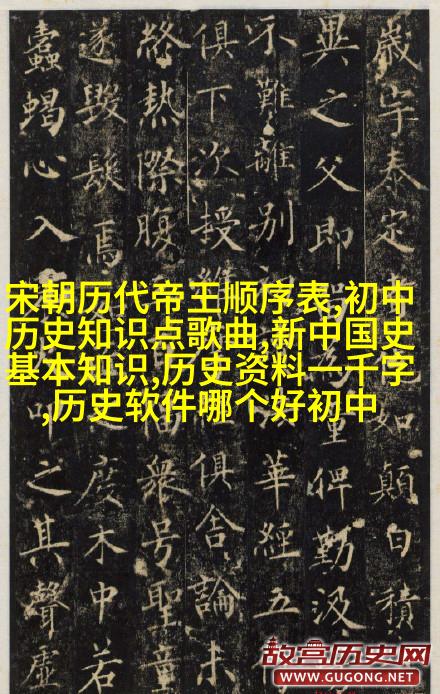 歲宇泰定如顛白積
異之父即俾勤汲
不難離別華經五
俱下次授俱舍論未
終熱際腹衆号聖童
遂毀焉度木中若
蠹蝎心入叩之其聲虛
宋朝历代帝王顺序表,初中
历史知识点歌曲,新中国史
基本知识,历史资料一千字
,历史软件哪个好初中
故宫历史网
WWW.GUGONG.NET